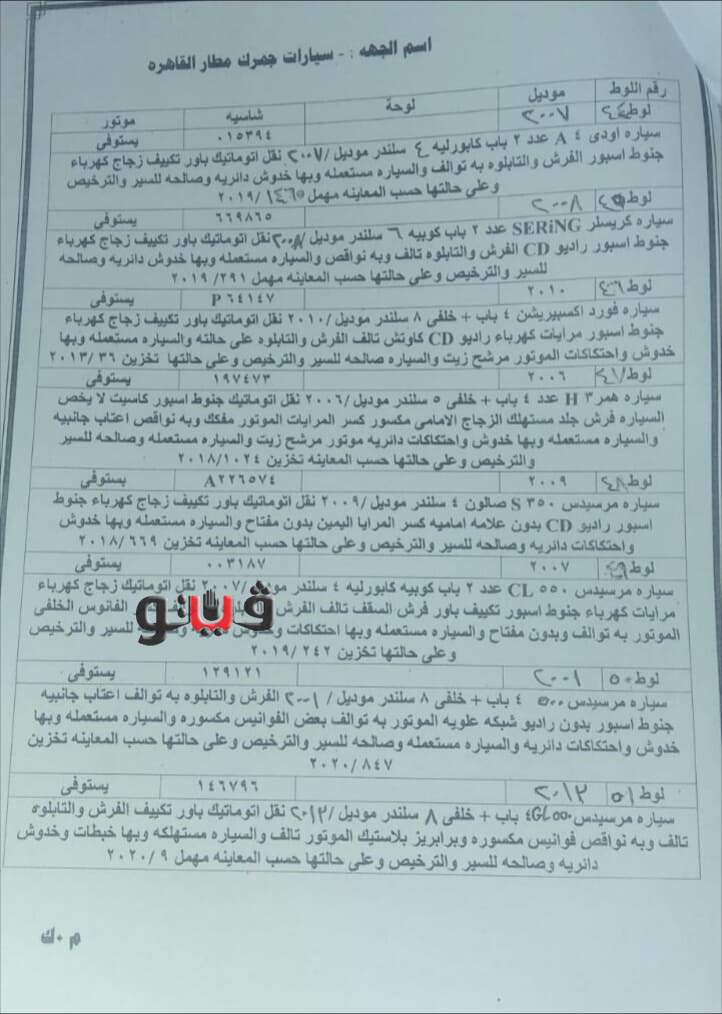 اسم الجهه :- سيارات جمرك مطار القاهره
رقم اللوط موديل لوحة شاسيه موتور
لوط ٤٤ ٢٠٠٧ ٠١٥٣٩٤ يستوفى
سياره اودى A ٤ عدد ٢ باب كابورليه ٤ سلندر موديل /٢٠٠٧ نقل اتوماتيك باور تكييف زجاج كهرباء
جنوط اسبور الفرش والتابلوه به توالف والسياره مستعمله وبها خدوش دائريه وصالحه للسير والترخيص
وعلى حالتها حسب المعاينه مهمل ١٤٦٥ /٢٠١٩
لوط ٤٥ ٢٠٠٨ ٦٦٩٨٦٥ يستوفى
سياره كريسلر SERiNG عدد ٢ باب كوبيه ٦ سلندر موديل /٢٠٠٨ نقل اتوماتيك باور تكييف زجاج كهرباء
جنوط اسبور راديو CD الفرش والتابلوه تالف وبه نواقص والسياره مستعمله وبها خدوش دائريه وصالحه
للسير والترخيص وعلى حالتها حسب المعاينه مهمل ٢٩١/ ٢٠١٩
لوط ٤٦ ٢٠١٠ P ٦٤١٤٧ يستوفى
سياره فورد اكسبيريشن ٤ باب + خلفى ٨ سلندر موديل /٢٠١٠ نقل اتوماتيك باور تكييف زجاج كهرباء
جنوط اسبور مرايات كهرباء راديو CD كاوتش تالف الفرش والتابلوه على حالته والسياره مستعمله وبها
خدوش واحتكاكات الموتور مرشح زيت والسياره صالحه للسير والترخيص وعلى حالتها تخزين ٣٦ /٢٠١٣
لوط ٤٧ ٢٠٠٦ ١٩٧٤٧٣ يستوفى
سياره همر H ٣ عدد ٤ باب + خلفى ٥ سلندر موديل /٢٠٠٦ نقل اتوماتيك جنوط اسبور كاسيت لا يخص
السياره فرش جلد مستهلك الزجاج الامامى مكسور كسر المرايات الموتور مفكك وبه نواقص اعتاب جانبيه
والسياره مستعمله وبها خدوش واحتكاكات دائريه موتور مرشح زيت والسياره مستعمله وصالحه للسير
والترخيص وعلى حالتها حسب المعاينه تخزين ١٠٢٤/ ٢٠١٨
لوط ٤٨ ٢٠٠٩ A٢٢٦٥٧٤ يستوفى
سياره مرسيدس S ٣٥٠ صالون ٤ سلندر موديل /٢٠٠٩ نقل اتوماتيك باور تكييف زجاج كهرباء جنوط
اسبور راديو CD بدون علامه اماميه كسر المرايا اليمين بدون مفتاح والسياره مستعمله وبها خدوش
واحتكاكات دائريه وصالحه للسير والترخيص وعلى حالتها حسب المعاينه تخزين ٦٦٩/ ٢٠١٨
لوط ٤٩ ٢٠٠٧ ٠٠٣١٨٧ يستوفى
سياره مرسيدس CL ٥٥٠ عدد ٢ باب كوبيه كابورليه ٤ سلندر /٢٠٠٧ نقل اتوماتيك زجاج كهرباء
مرايات كهرباء جنوط اسبور تكييف باور فرش السقف تالف الفرش الفانوس الخلفى
الموتور به توالف وبدون مفتاح والسياره مستعمله وبها احتكاكات للسير والترخيص
وعلى حالتها تخزين ٢٤٢/ ٢٠١٩
ڤيتو
لوط ٥٠ ٢٠٠١ ١٢٩١٢١ يستوفى
سياره مرسيدس ٥٠٠ ٤ باب + خلفى ٨ سلندر موديل /٢٠٠١ الفرش والتابلوه به توالف اعتاب جانبيه
جنوط اسبور بدون راديو شبكه علويه الموتور به توالف بعض الفوانيس مكسوره والسياره مستعمله وبها
خدوش واحتكاكات دائريه والسياره مستعمله وصالحه للسير والترخيص وعلى حالتها حسب المعاينه تخزين
٨٤٧/ ٢٠٢٠
لوط ٥١ ٢٠١٢ ١٤٦٧٩٦ يستوفى
سياره مرسيدس GL٥٠٠ ٤ باب + خلفى ٨ سلندر موديل /٢٠١٢ نقل اتوماتيك باور تكييف الفرش والتابلوه
تالف وبه نواقص فوانيس مكسوره وبرابريز بلاستيك الموتور تالف والسياره مستهلكه وبها خبطات وخدوش
دائريه وصالحه للسير والترخيص وعلى حالتها حسب المعاينه مهمل ٩ /٢٠٢٠
م.ك